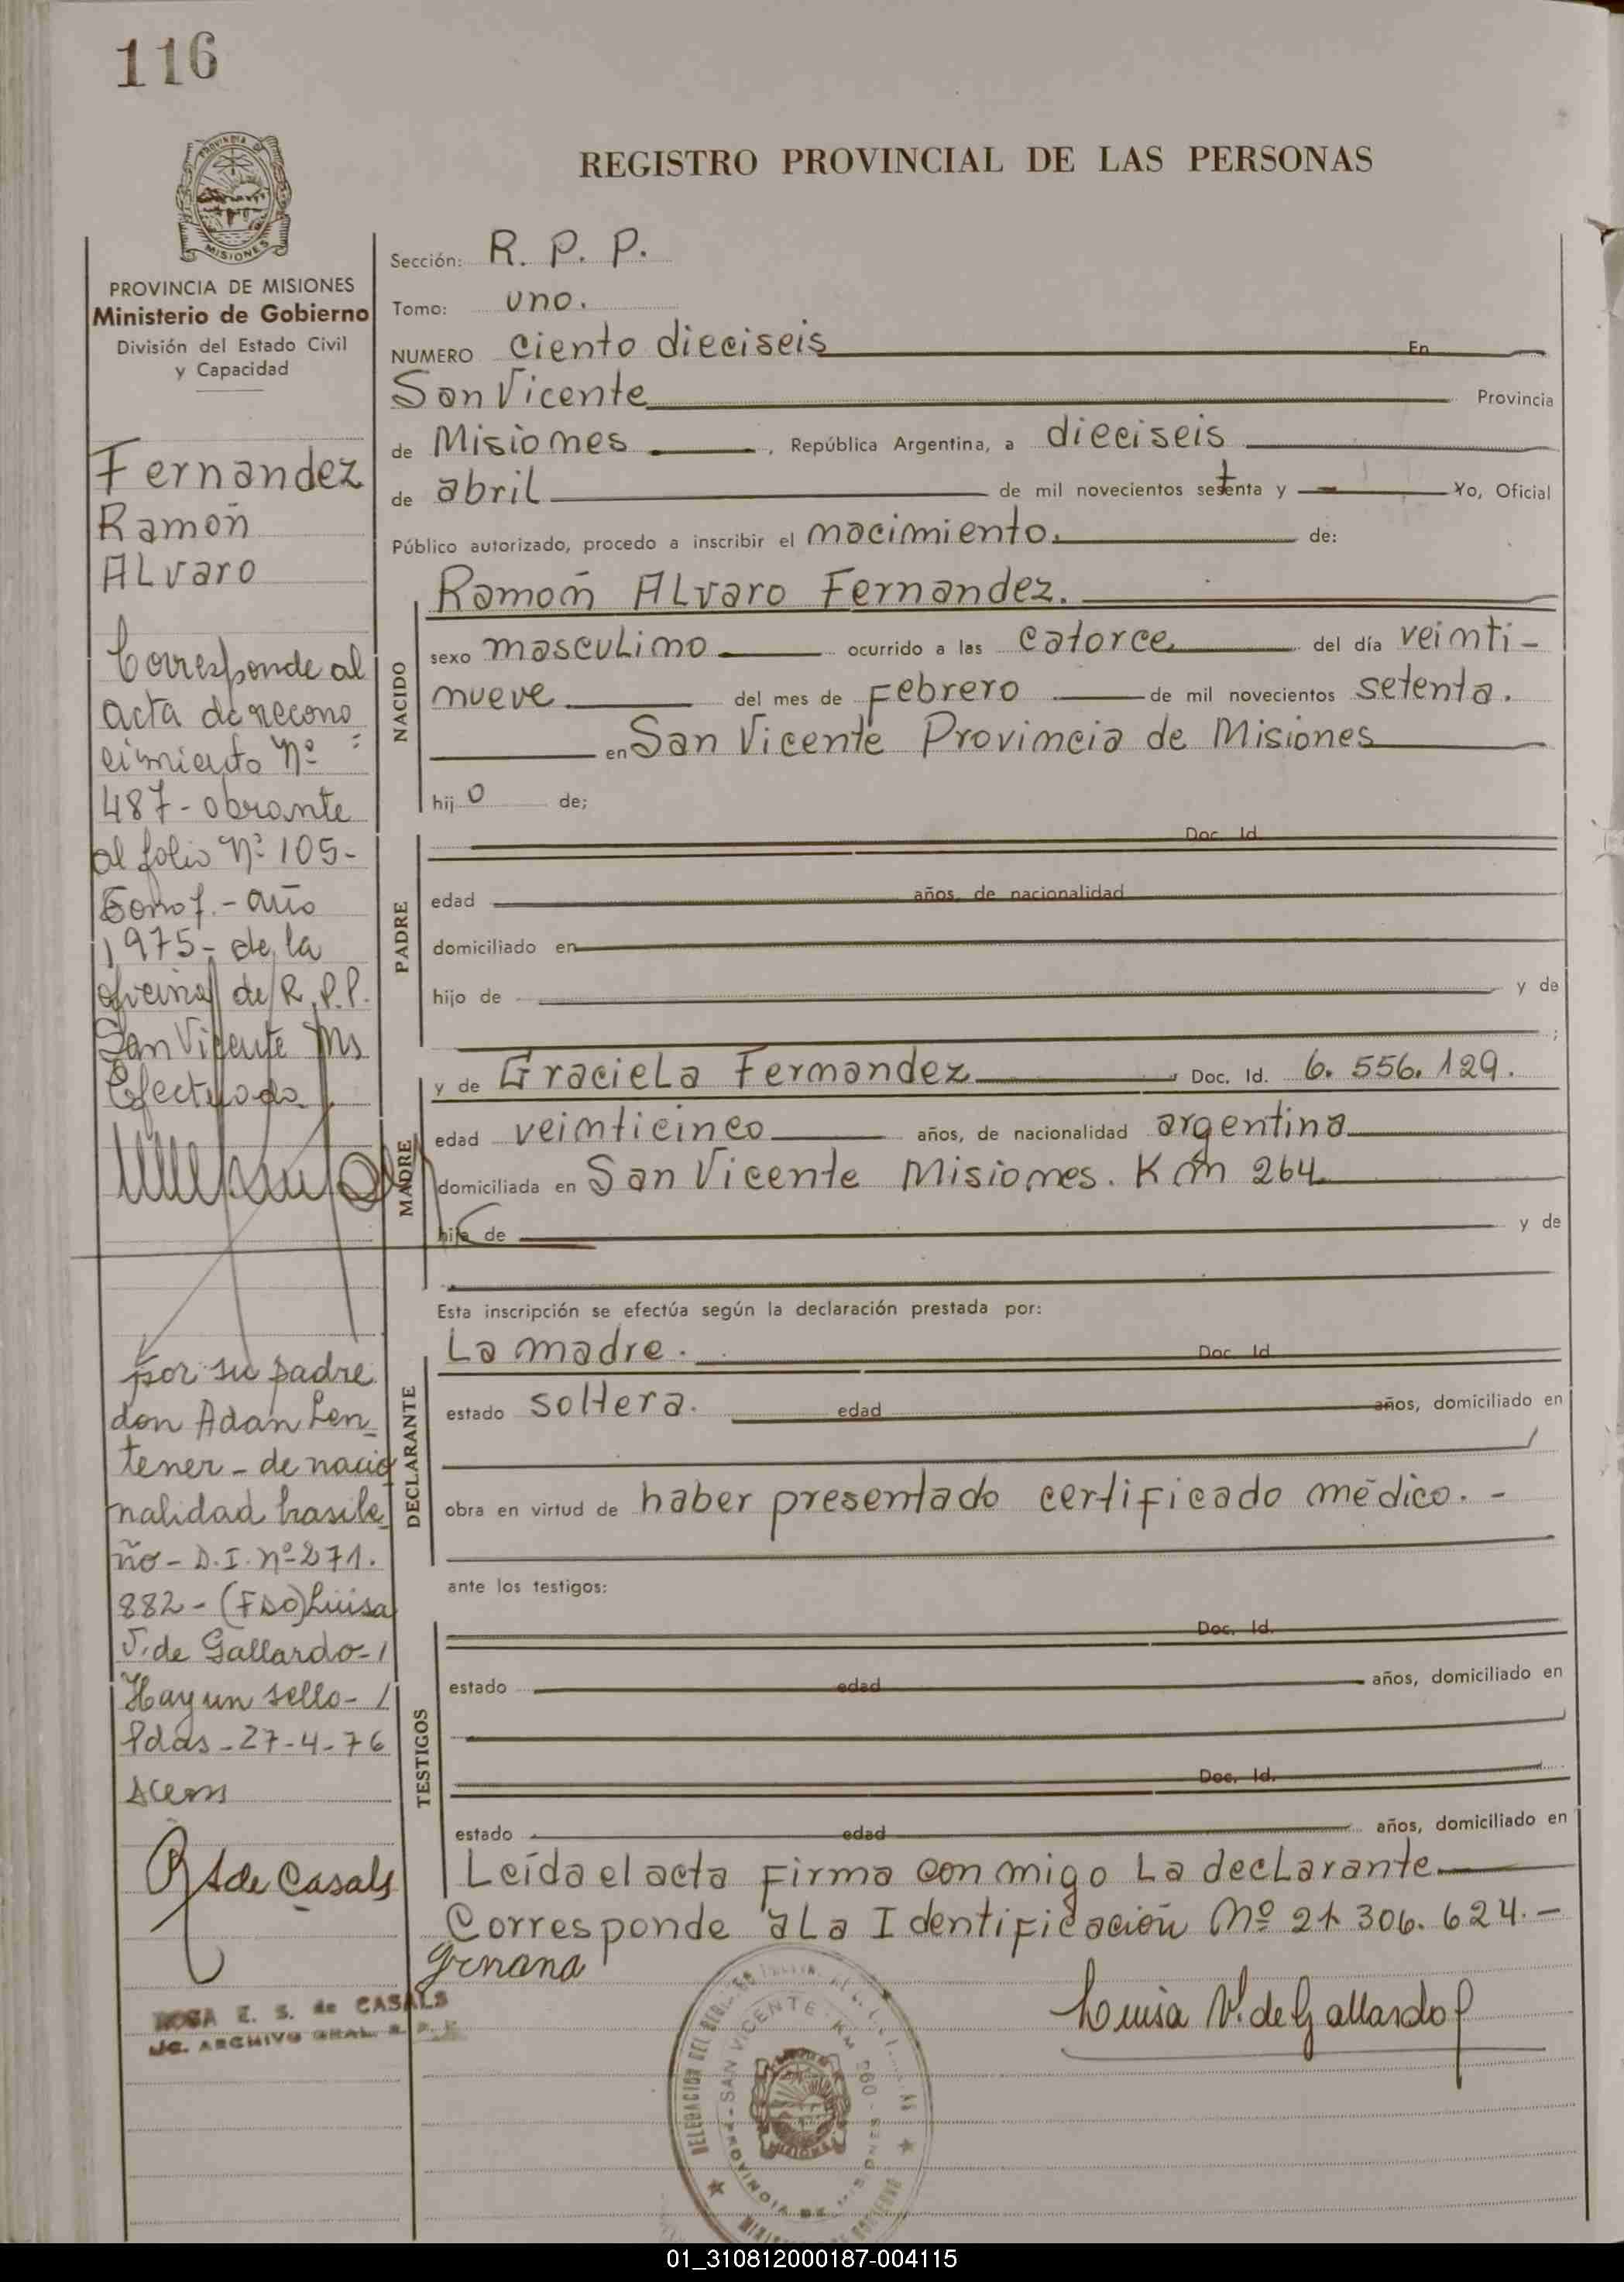 116
PROVINCIA DE MISIONES
Ministerio de Gobierno
División del Estado Civil
y Capacidad
Fernandez
Ramoñ
ALvaro
Corresponde al
acta de recono
cimiento Nº
487- obrante
al folio Nº 105-
Tomo 1.- año
1975- de la
oficina de R.P.P.
San Vicente Ms
Efectuada
por su padre
don Adan Len
tener - de nacio
nalidad brasile
ño - D.I. nº 271.
882 - (FDO) Luisa
V. de Gallardo- /
Hay un sello- /
Pdas - 27-4-76
de Casals
ROSA E. S. de CASALS
ARCHIVO GRAL. R. P. P.
REGISTRO PROVINCIAL DE LAS PERSONAS
Sección: R. P. P.
Tomo: uno.
NUMERO ciento dieciseis En
San Vicente Provincia
de Misiones , República Argentina, a dieciseis
de abril de mil novecientos setenta y Yo, Oficial
Público autorizado, procedo a inscribir el nacimiento. de:
NACIDO
Ramoñ ALvaro Fernandez.
sexo mascuLino ocurrido a las catorce del día veinti-
nueve del mes de Febrero de mil novecientos setenta.
en San Vicente Provincia de Misiones
hij o de;
PADRE
Doc. Id.
edad años, de nacionalidad
domiciliado en
hijo de y de
;
MADRE
y de GracieLa Fernandez Doc. Id. 6. 556. 129.
edad veinticinco años, de nacionalidad argentina
domiciliada en San Vicente Misiones. Km 264
hija de y de
Esta inscripción se efectúa según la declaración prestada por:
DECLARANTE
La madre. Doc. Id.
estado soltera. edad años, domiciliado en
obra en virtud de haber presentado certificado médico. -
ante los testigos:
TESTIGOS
Doc. Id.
estado edad años, domiciliado en
Doc. Id.
estado edad años, domiciliado en
Leída el acta Firma con migo La decLarante
Corresponde a La Identificacioñ Nº 21 306. 624. -
Luisa V. de Gallardo
SAN VICENTE - KM 260 - MISIONES
01_310812000187-004115